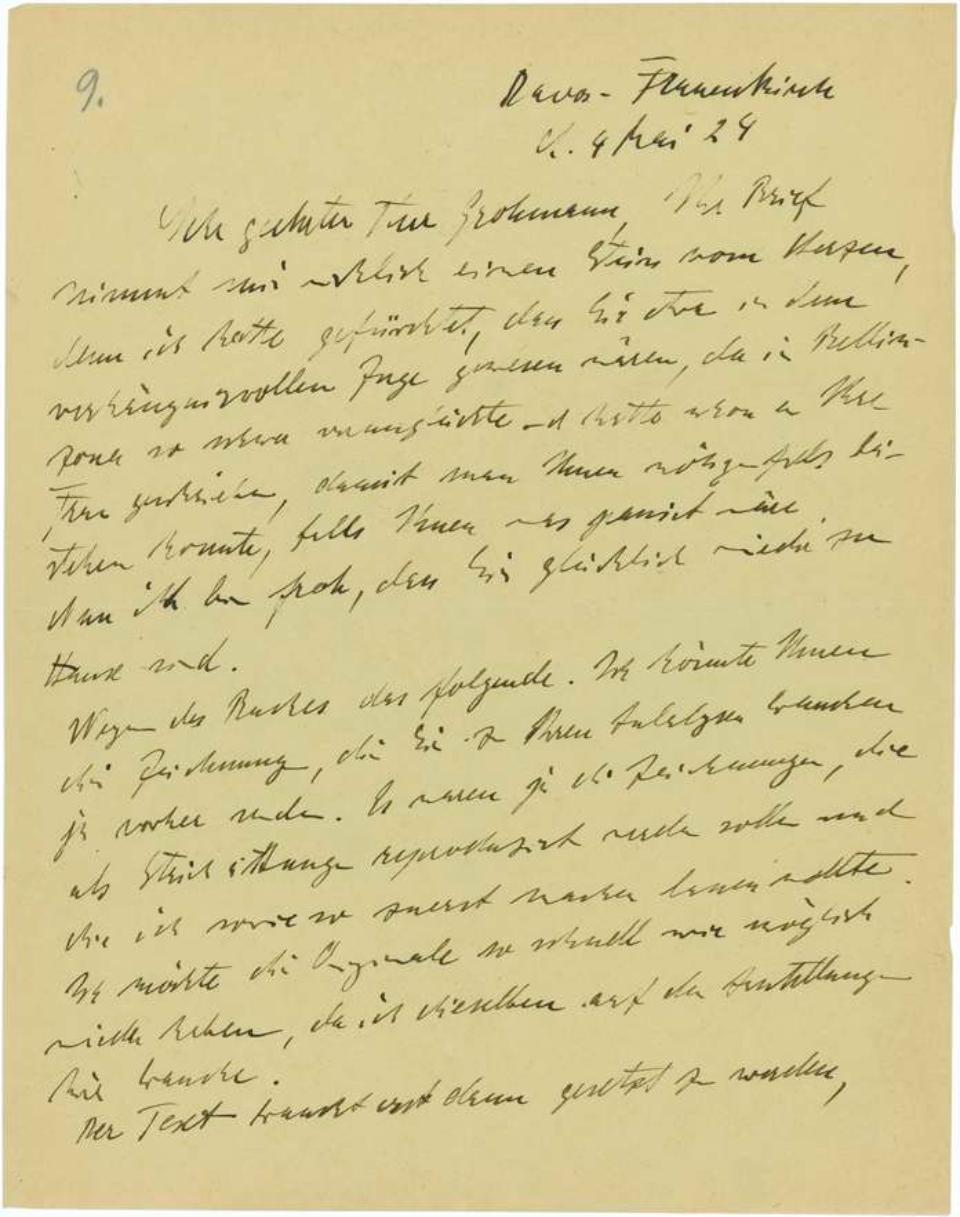 9.
Davos-Frauenkirch
d. 4 Mai 24
Sehr geehrter Herr Grohmann, Ihr Brief
nimmt mir wirklich einen Stein vom Herzen,
denn ich hatte gefürchtet, dass Sie etwa in dem
verhängnisvollen Zuge gewesen wären, der in Bellin-
zona so schwer verunglückte und hatte schon an Ihre
Frau geschrieben, damit man Ihnen nötigenfalls bei-
stehen konnte, falls Ihnen was passiert wäre.
Nun ich bin froh, dass Sie glücklich wieder zu
Hause sind.
Wegen des Buches das folgende. Ich könnte Ihnen
die Zeichnung, die Sie zu Ihren brauchen
ja vorher senden. Es waren ja die Zeichnungen, die
als Strichätzungen reproduziert werden sollen und
die ich sowieso zuerst machen lassen wollte.
Ich möchte die Originale so schnell wie möglich
wieder haben, da ich dieselben auf der Ausstellung
hier brauche.
Der Text braucht erst dann gesetzt zu werden,